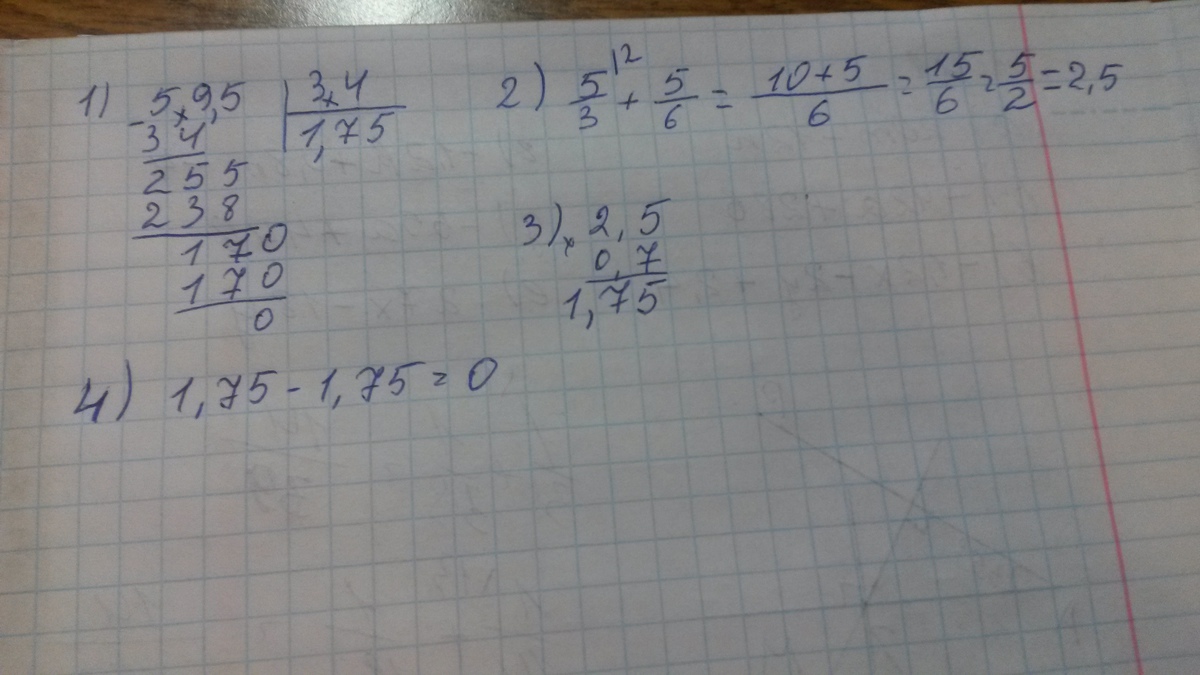 1) 5,9,5 | 3,4
34 | 1,75
255
238
170
170
0
2) 5/3 |2 + 5/6 = 10+5/6 = 15/6 = 5/2 = 2,5
3) × 2,5
0,7
1,75
4) 1,75 - 1,75 = 0